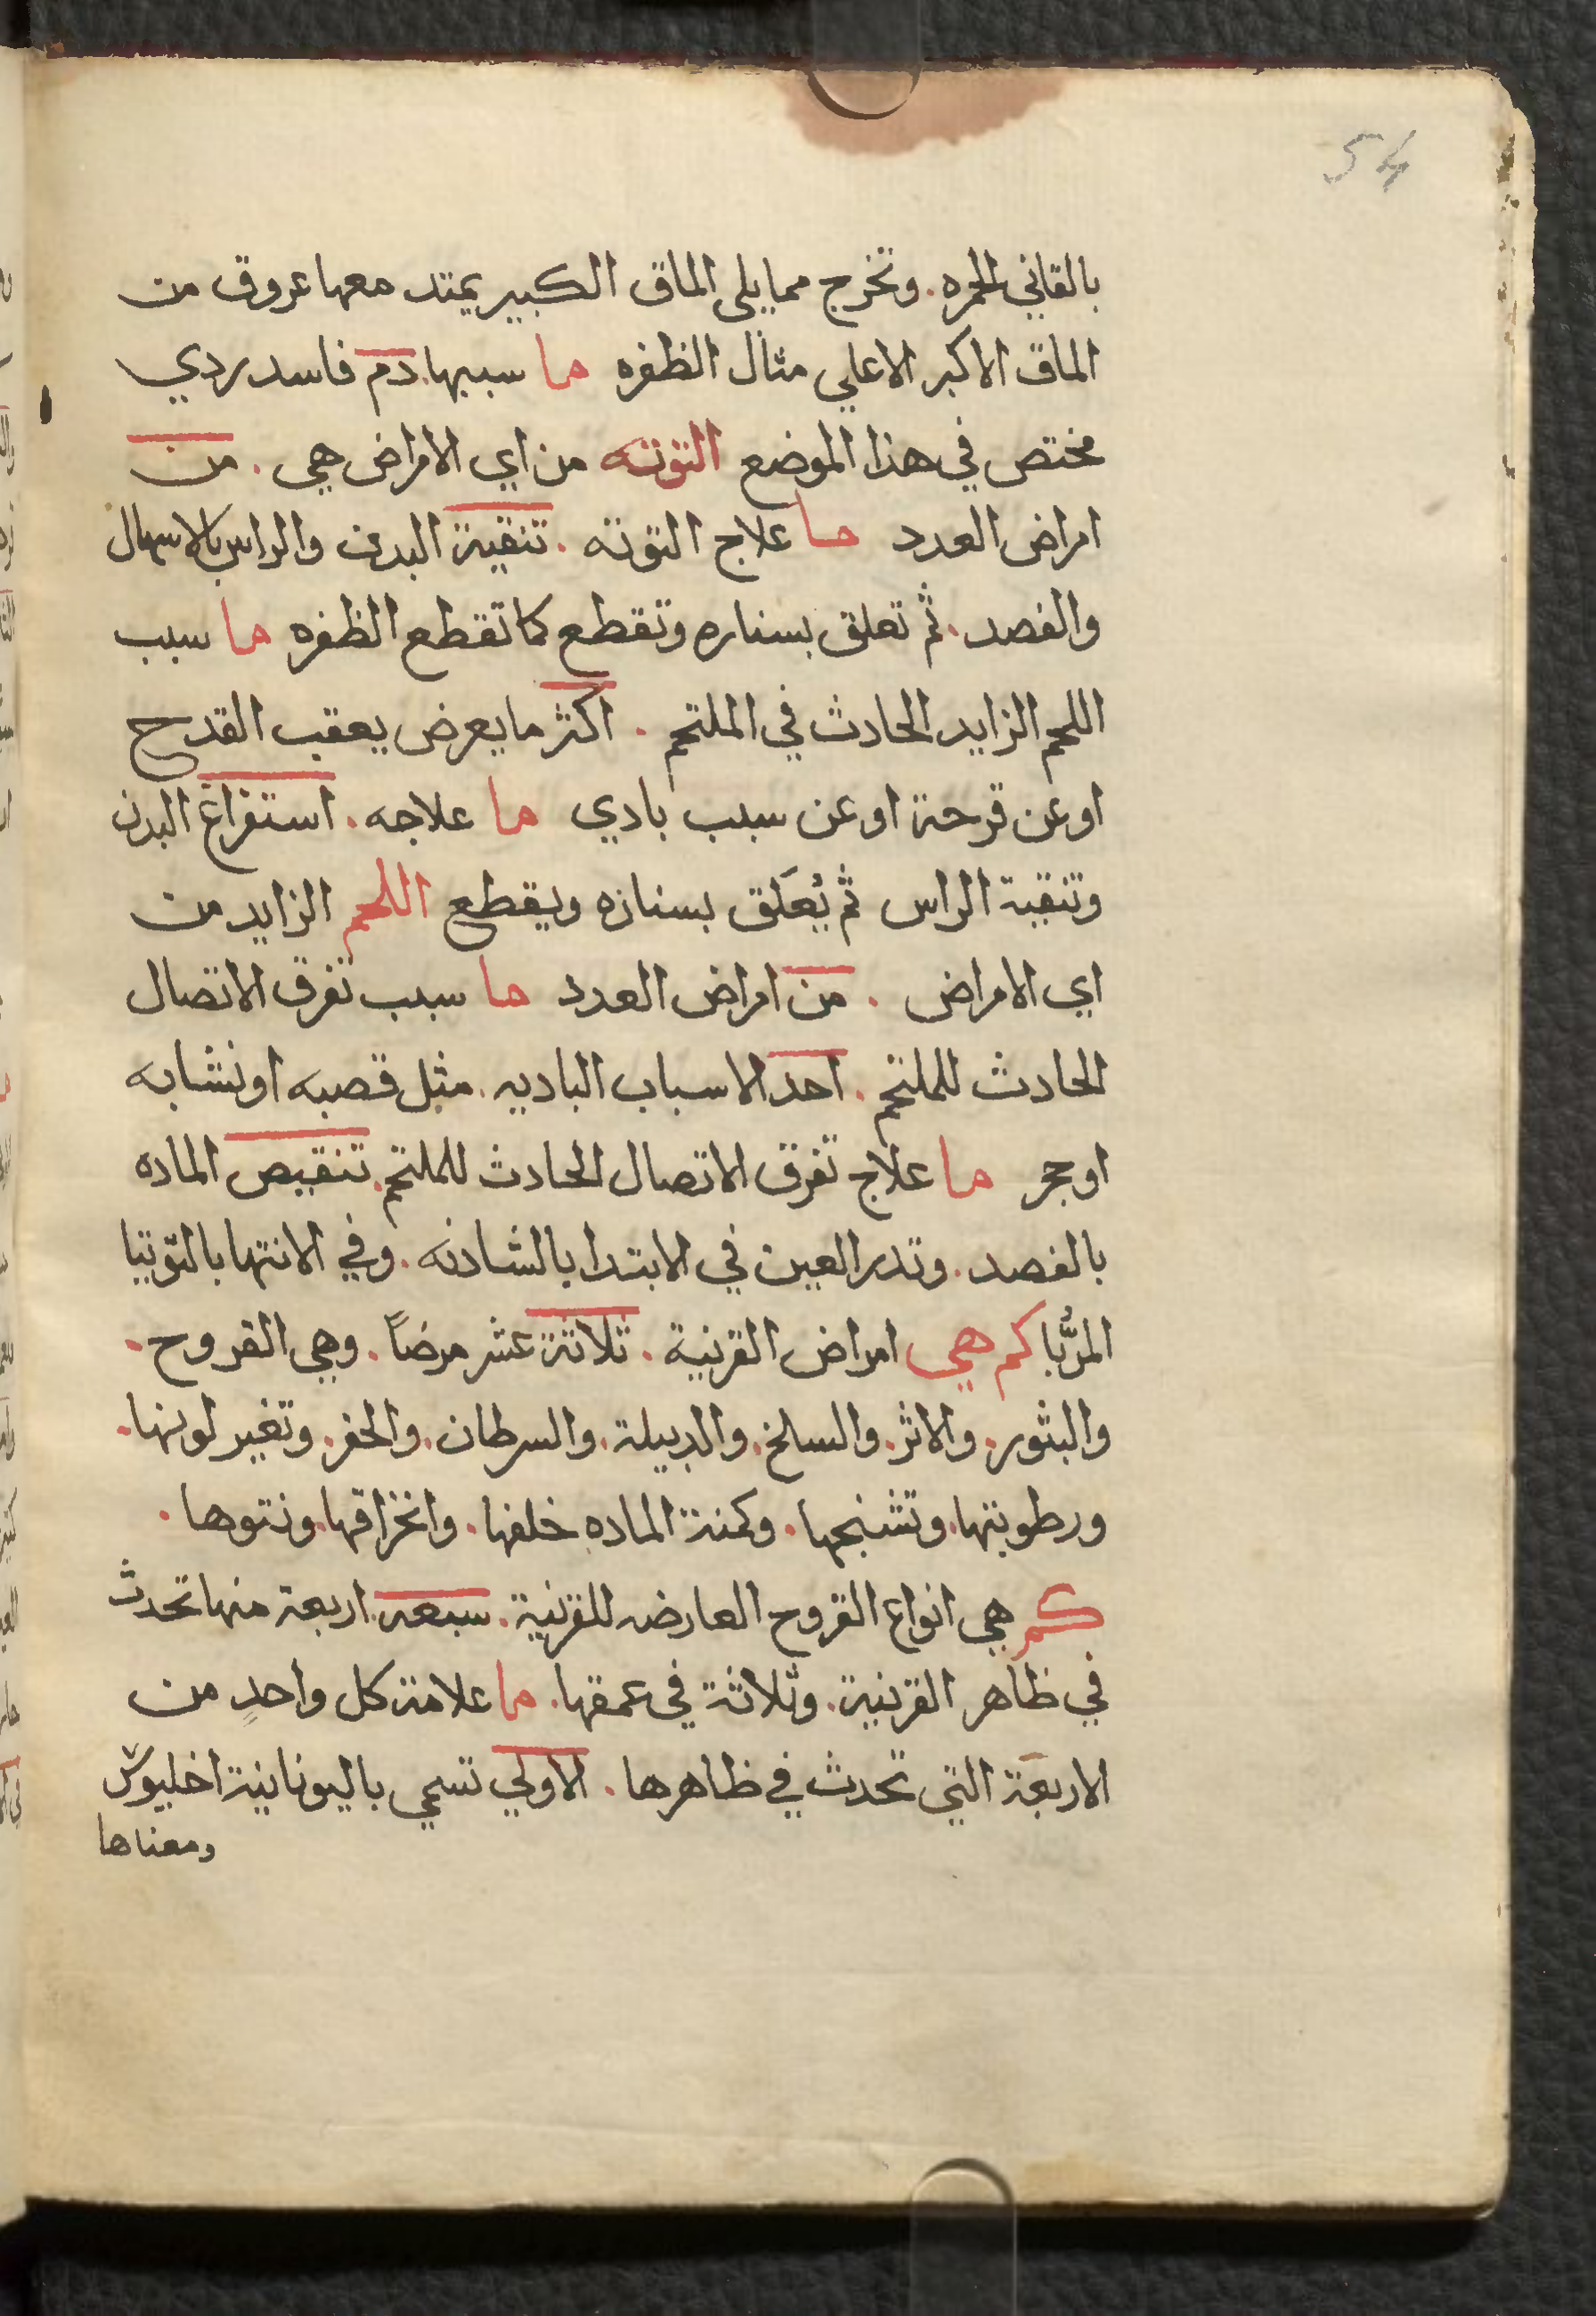 54
بالقاني الحمره. وتخرج مما يلي الماق الكبير يمتد معها عروق من
الماق الاكبر الاعلي مثال الظفره ما سببها. دم فاسد ردي
مختص في هذا الموضع التوته من اي الامراض هي. من
امراض العدد ما علاج التوته. تنقية البدن والراس بالاسهال
والفصد. ثم تعلق بسناره وتقطع كما تقطع الظفره ما سبب
اللحم الزايد الحادث في الملتحم. اكثر ما يعرض يعقب القدح
او عن قرحة او عن سبب بادي ما علاجه. استفراغ البدن
وتنقية الراس ثم يُعَلق بسنازه ويقطع اللحم الزايد من
اي الامراض. من امراض العدد ما سبب تفرق الاتصال
الحادث للملتحم. احد الاسباب الباديه. مثل قصبه او نشابه
او حجر ما علاج تفرق الاتصال الحادث للملتحم. تنقيص الماده
بالفصد. وتدر العين في الابتدا بالشادنه. وفي الانتها بالتوتيا
المُربَّا كم هي امراض القرنية. ثلاثة عشر مرضاً. وهي القروح.
والبثور. والاثر. والسلخ. والدبيلة. والسرطان. والحفر. وتغير لونها.
ورطوبتها. وتشنجها. وكمنة الماده خلفها. وانخراقها. ونتوها.
كم هي انواع القروح العارضه للقرنية. سبعه. اربعة منها تحدث
في ظاهر القرنية. وثلاثة في عمقها. ما علامة كل واحدٍ من
الاربعة التي تحدث في ظاهرها. الاولي تسمي باليونانية اخليوش
ومعناها